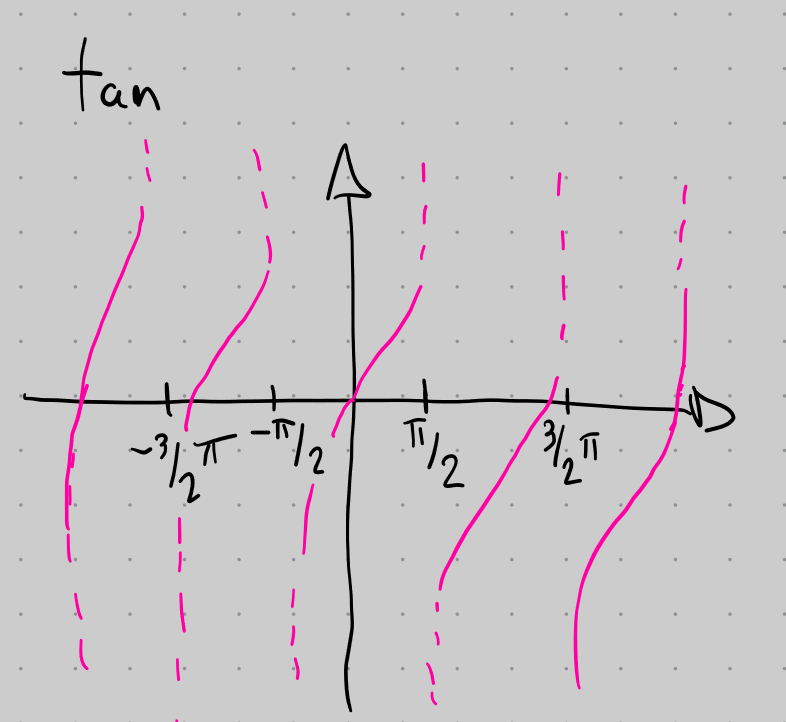 tan
-3/2 π -π/2 π/2 3/2 π